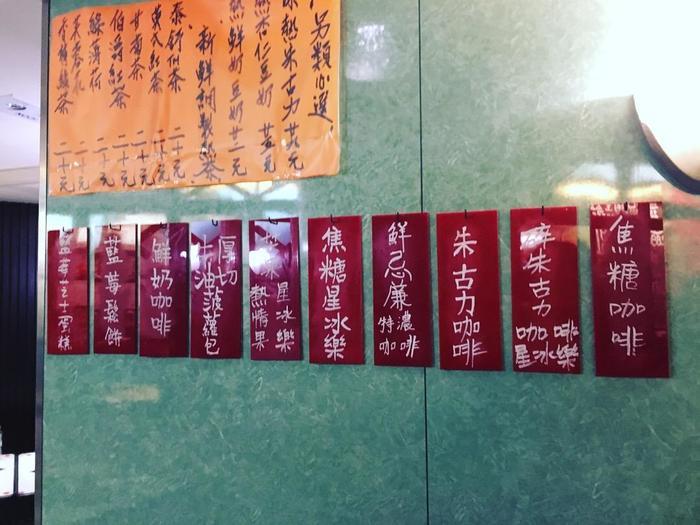 另類心選
熱朱古力 廿八元
熱杏仁豆奶 廿五元
熱鮮奶豆奶 廿二元
新鮮 製熱茶
茶 二十元
紅茶 二十元
甘菊茶 二十元
伯爵紅茶 二十元
綠薄荷 二十元
二十元
綠茶 二十元
焦糖咖啡
碎朱古力
咖啡
星冰樂
朱古力咖啡
鮮忌廉
特濃
咖啡
焦糖星冰樂
星冰樂
熱情果
厚切
牛油菠蘿包
鮮奶咖啡
藍莓鬆餅
藍莓芝士蛋糕